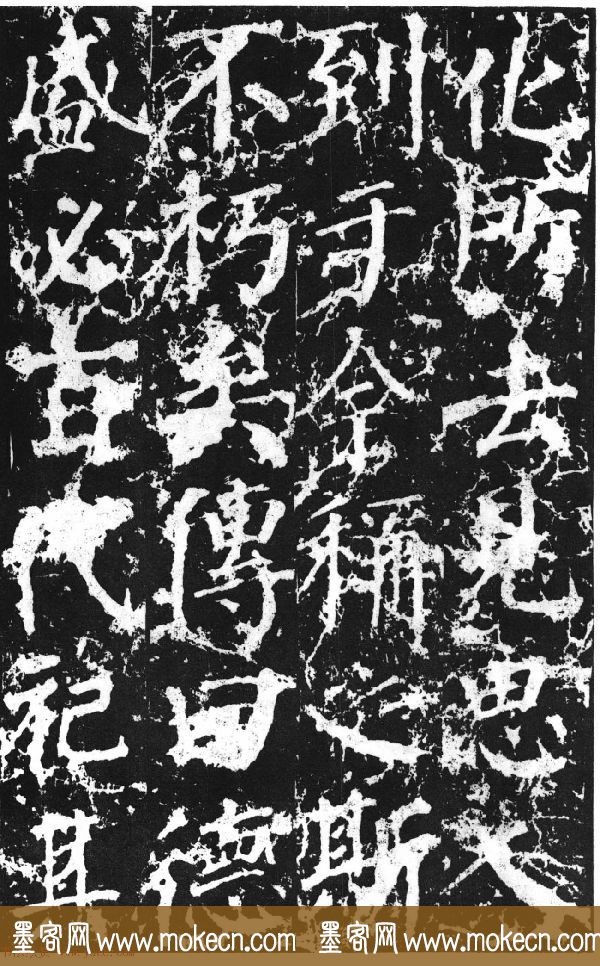 化所去見思人
到于今稱之斯
不朽矣傳曰德
盛必百代祀其
墨客网 www.mokecn.com 墨客网 www.mokecn.com